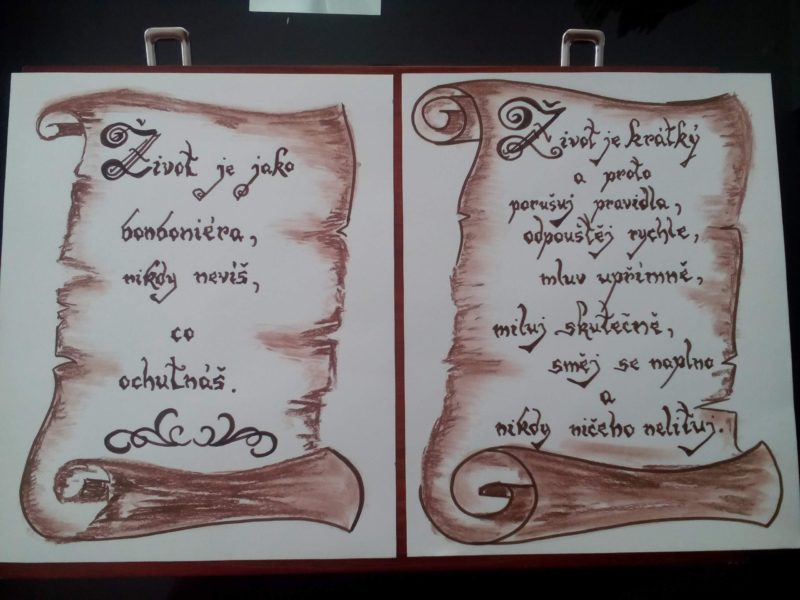 Život je jako
bonboniéra,
nikdy nevíš,
co
ochutnáš.
Život je krátký
a proto
porušuj pravidla,
odpouštěj rychle,
mluv upřímně,
miluj skutečně,
směj se naplno
a
nikdy ničeho nelituj.